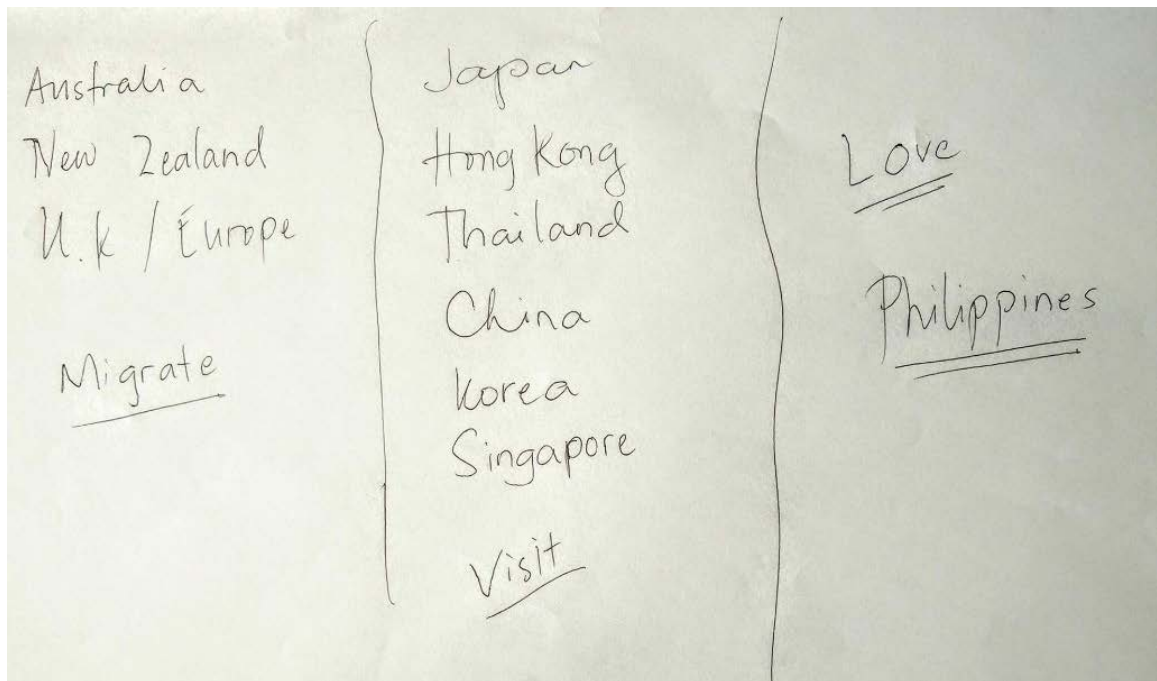 Australia
New Zealand
U.k / Europe
Migrate
Japan
Hong Kong
Thailand
China
Korea
Singapore
Visit
Love
Philippines